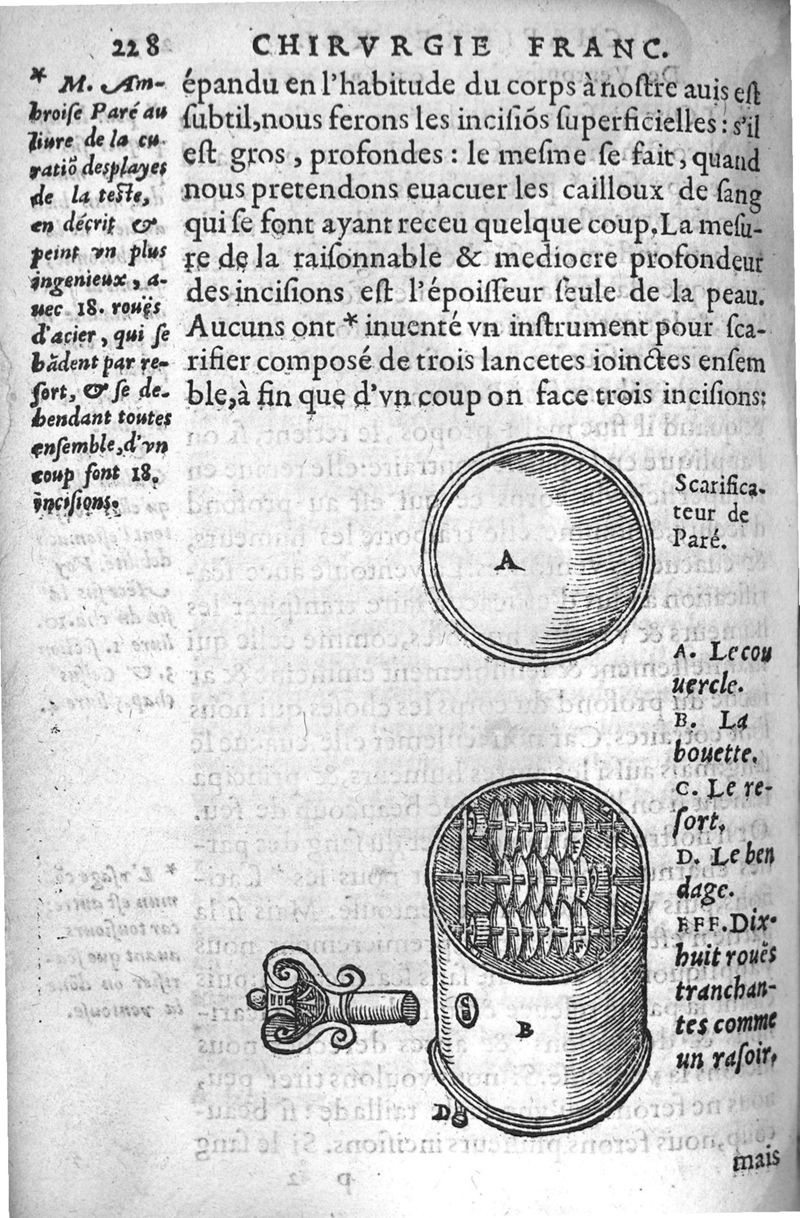 228 CHIRVRGIE FRANC.
* M. Am-
broiſe Paré au
liure de la cu-
ratiõ des playes
de la teſte,
en décrit &
peint vn plus
ingenieux, a-
uec 18. rouës
d'acier, qui ſe
bãdent par re-
ſort, & ſe de-
bendant toutes
enſemble, d'vn
coup font 18.
inciſions.
épandu en l'habitude du corps à noſtre auis eſt
ſubtil, nous ferons les inciſiõs ſuperficielles: s'il
eſt gros, profondes: le meſme ſe fait, quand
nous pretendons euacuer les cailloux de ſang
qui ſe font ayant receu quelque coup. La meſu-
re de la raiſonnable & mediocre profondeur
des inciſions eſt l'époiſſeur ſeule de la peau.
Aucuns ont * inuenté vn inſtrument pour ſca-
rifier compoſé de trois lancetes ioinctes enſem
ble, à fin que d'vn coup on face trois inciſions:
Scarifica-
teur de
Paré.
A
A. Le cou
uercle.
B. La
bouette.
C. Le re-
ſort.
D. Le ben
dage.
EFF. Dix-
huit rouës
tranchan-
tes comme
un raſoir,
C
B
D
mais